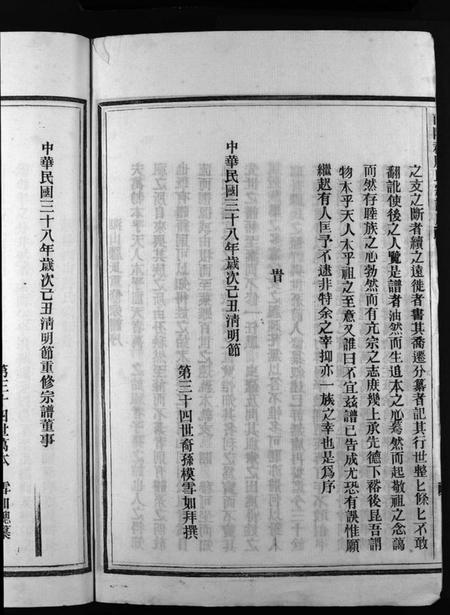 之支之斷者續之遠徙者書其喬遷分纂者記其行世整匕條匕不敢
翻訛使後之人覽是譜者油然而生追本之心蔫然而起敬祖之念藹
而然存睦族之心勃然而有亢宗之志庶幾上承先德下裕後昆吾謂
物本乎天人本乎祖之至意又誰曰不宜茲譜已告成尤恐有誤惟願
繼起有人匡予不逮非特余之幸抑亦一族之幸也是爲序
中華民國三十八年歲次己丑清明節
第三十四世裔孫模雪如拜撰
中華民國三十八年歲次己丑清明節重修宗譜董事
第三十四世
雪如總纂